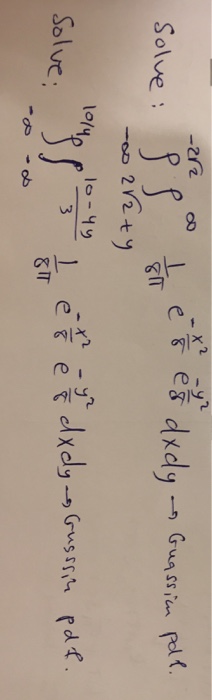 Solve : ∫_{-∞}^{-2√2} ∫_{2√2+y}^{∞} 1/8π e^{-x²/8} e^{-y²/8} dxdy → Guassian pdf.
Solve ; ∫_{-∞}^{10/4} ∫_{-∞}^{(10-4y)/3} 1/8π e^{-x²/8} e^{-y²/8} dxdy → Gusssin pdf.